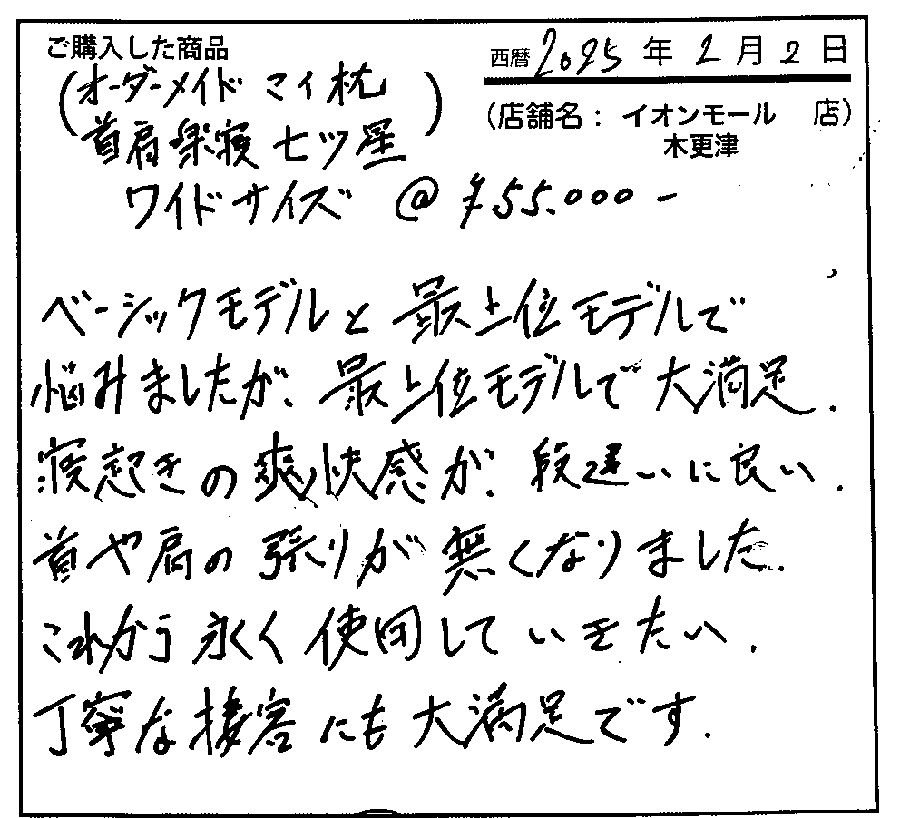 ご購入した商品
西暦 2025 年 2 月 2 日
(オーダーメイド マイ枕
首肩楽寝 七ツ星)
(店舗名: イオンモール木更津 店)
ワイドサイズ @ ¥55.000-
ベーシックモデルと最上位モデルで
悩みましたが、最上位モデルで大満足.
寝起きの爽快感が、段違いに良い.
首や肩の張りが無くなりました.
これから永く使用していきたい.
丁寧な接客にも大満足です.